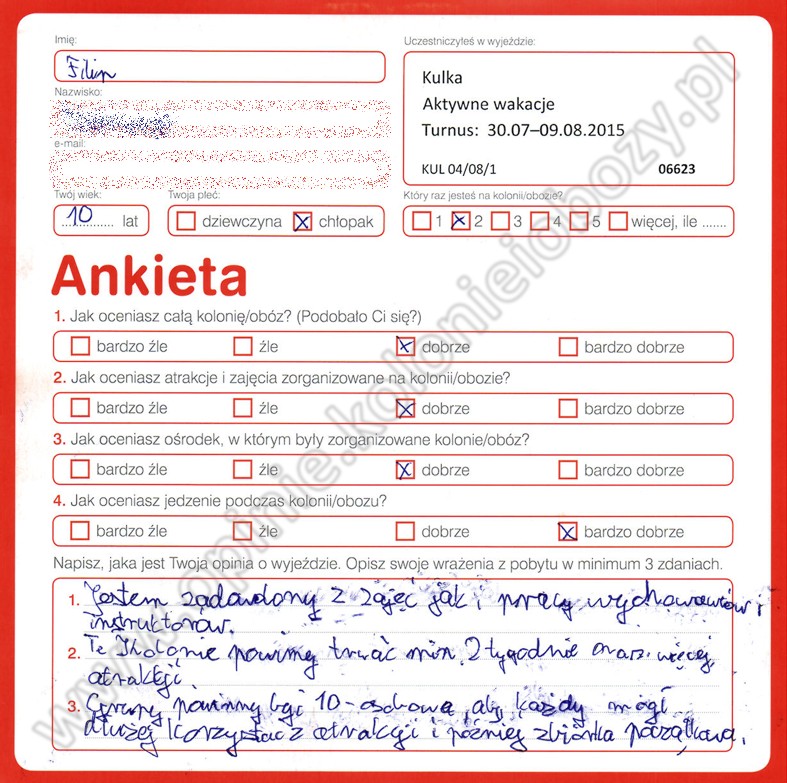 Imię:
Filip
Nazwisko:
e-mail:
Twój wiek:
10 lat
Twoja płeć:
dziewczyna chłopak
Uczestniczyłeś w wyjeździe:
Kulka
Aktywne wakacje
Turnus: 30.07–09.08.2015
KUL 04/08/1 06623
Który raz jesteś na kolonii/obozie?
1 2 3 4 5 więcej, ile .......
Ankieta
1. Jak oceniasz całą kolonię/obóz? (Podobało Ci się?)
bardzo źle źle dobrze bardzo dobrze
2. Jak oceniasz atrakcje i zajęcia zorganizowane na kolonii/obozie?
bardzo źle źle dobrze bardzo dobrze
3. Jak oceniasz ośrodek, w którym były zorganizowane kolonie/obóz?
bardzo źle źle dobrze bardzo dobrze
4. Jak oceniasz jedzenie podczas kolonii/obozu?
bardzo źle źle dobrze bardzo dobrze
Napisz, jaka jest Twoja opinia o wyjeździe. Opisz swoje wrażenia z pobytu w minimum 3 zdaniach.
1. Jestem zadowolony z zajęć jak i pracy wychowawców i
instruktorów.
2. Te kolonie powinny trwać min. 2 tygodnie oraz więcej
atrakcji
3. Grupy powinny być 10-osobowe, aby każdy mógł
dłużej korzystać z atrakcji i później zbiórka początkowa.
www.opinie.kolonieiobozy.pl